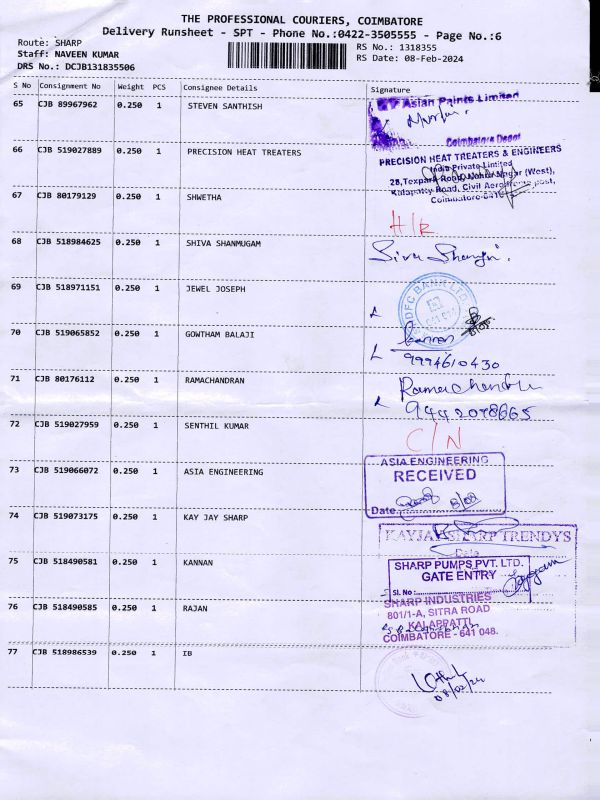 THE PROFESSIONAL COURIERS, COIMBATORE
Delivery Runsheet - SPT - Phone No.:0422-3505555 - Page No.:6
Route: SHARP
Staff: NAVEEN KUMAR
DRS No.: DCJB131835506
RS No.: 1318355
RS Date: 08-Feb-2024
S No Consignment No Weight PCS Consignee Details Signature
65 CJB 89967962 0.250 1 STEVEN SANTHISH
Asian Paints Limited
Coimbatore Depot
66 CJB 519027889 0.250 1 PRECISION HEAT TREATERS
PRECISION HEAT TREATERS & ENGINEERS
India Private Limited
28, Texpark Road, Nehru Nagar (West),
Kalapatty Road, Civil Aerodrome post,
Coimbatore-641
67 CJB 80179129 0.250 1 SHWETHA
68 CJB 518984625 0.250 1 SHIVA SHANMUGAM
69 CJB 518971151 0.250 1 JEWEL JOSEPH
HDFC BANK LTD
70 CJB 519065852 0.250 1 GOWTHAM BALAJI
Kannan
9994610430
71 CJB 80176112 0.250 1 RAMACHANDRAN
9442078665
72 CJB 519027959 0.250 1 SENTHIL KUMAR
C/N
73 CJB 519066072 0.250 1 ASIA ENGINEERING
ASIA ENGINEERING
RECEIVED
Date
74 CJB 519073175 0.250 1 KAY JAY SHARP
KAYJAY SHARP TRENDYS
Date
75 CJB 518490581 0.250 1 KANNAN
SHARP PUMPS PVT. LTD.
GATE ENTRY
Sl. No:
76 CJB 518490585 0.250 1 RAJAN
SHARP INDUSTRIES
801/1-A, SITRA ROAD
KALAPPATTI,
COIMBATORE - 641 048.
77 CJB 518986539 0.250 1 IB
08/02/24